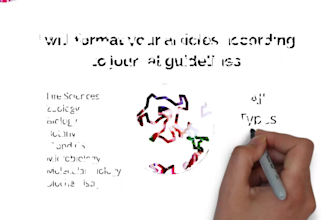 I will format your articles according
to journal guidelines
Life Sciences
Zoology
Biology
Botany
Microbiology
Molecular Biology
All
Types